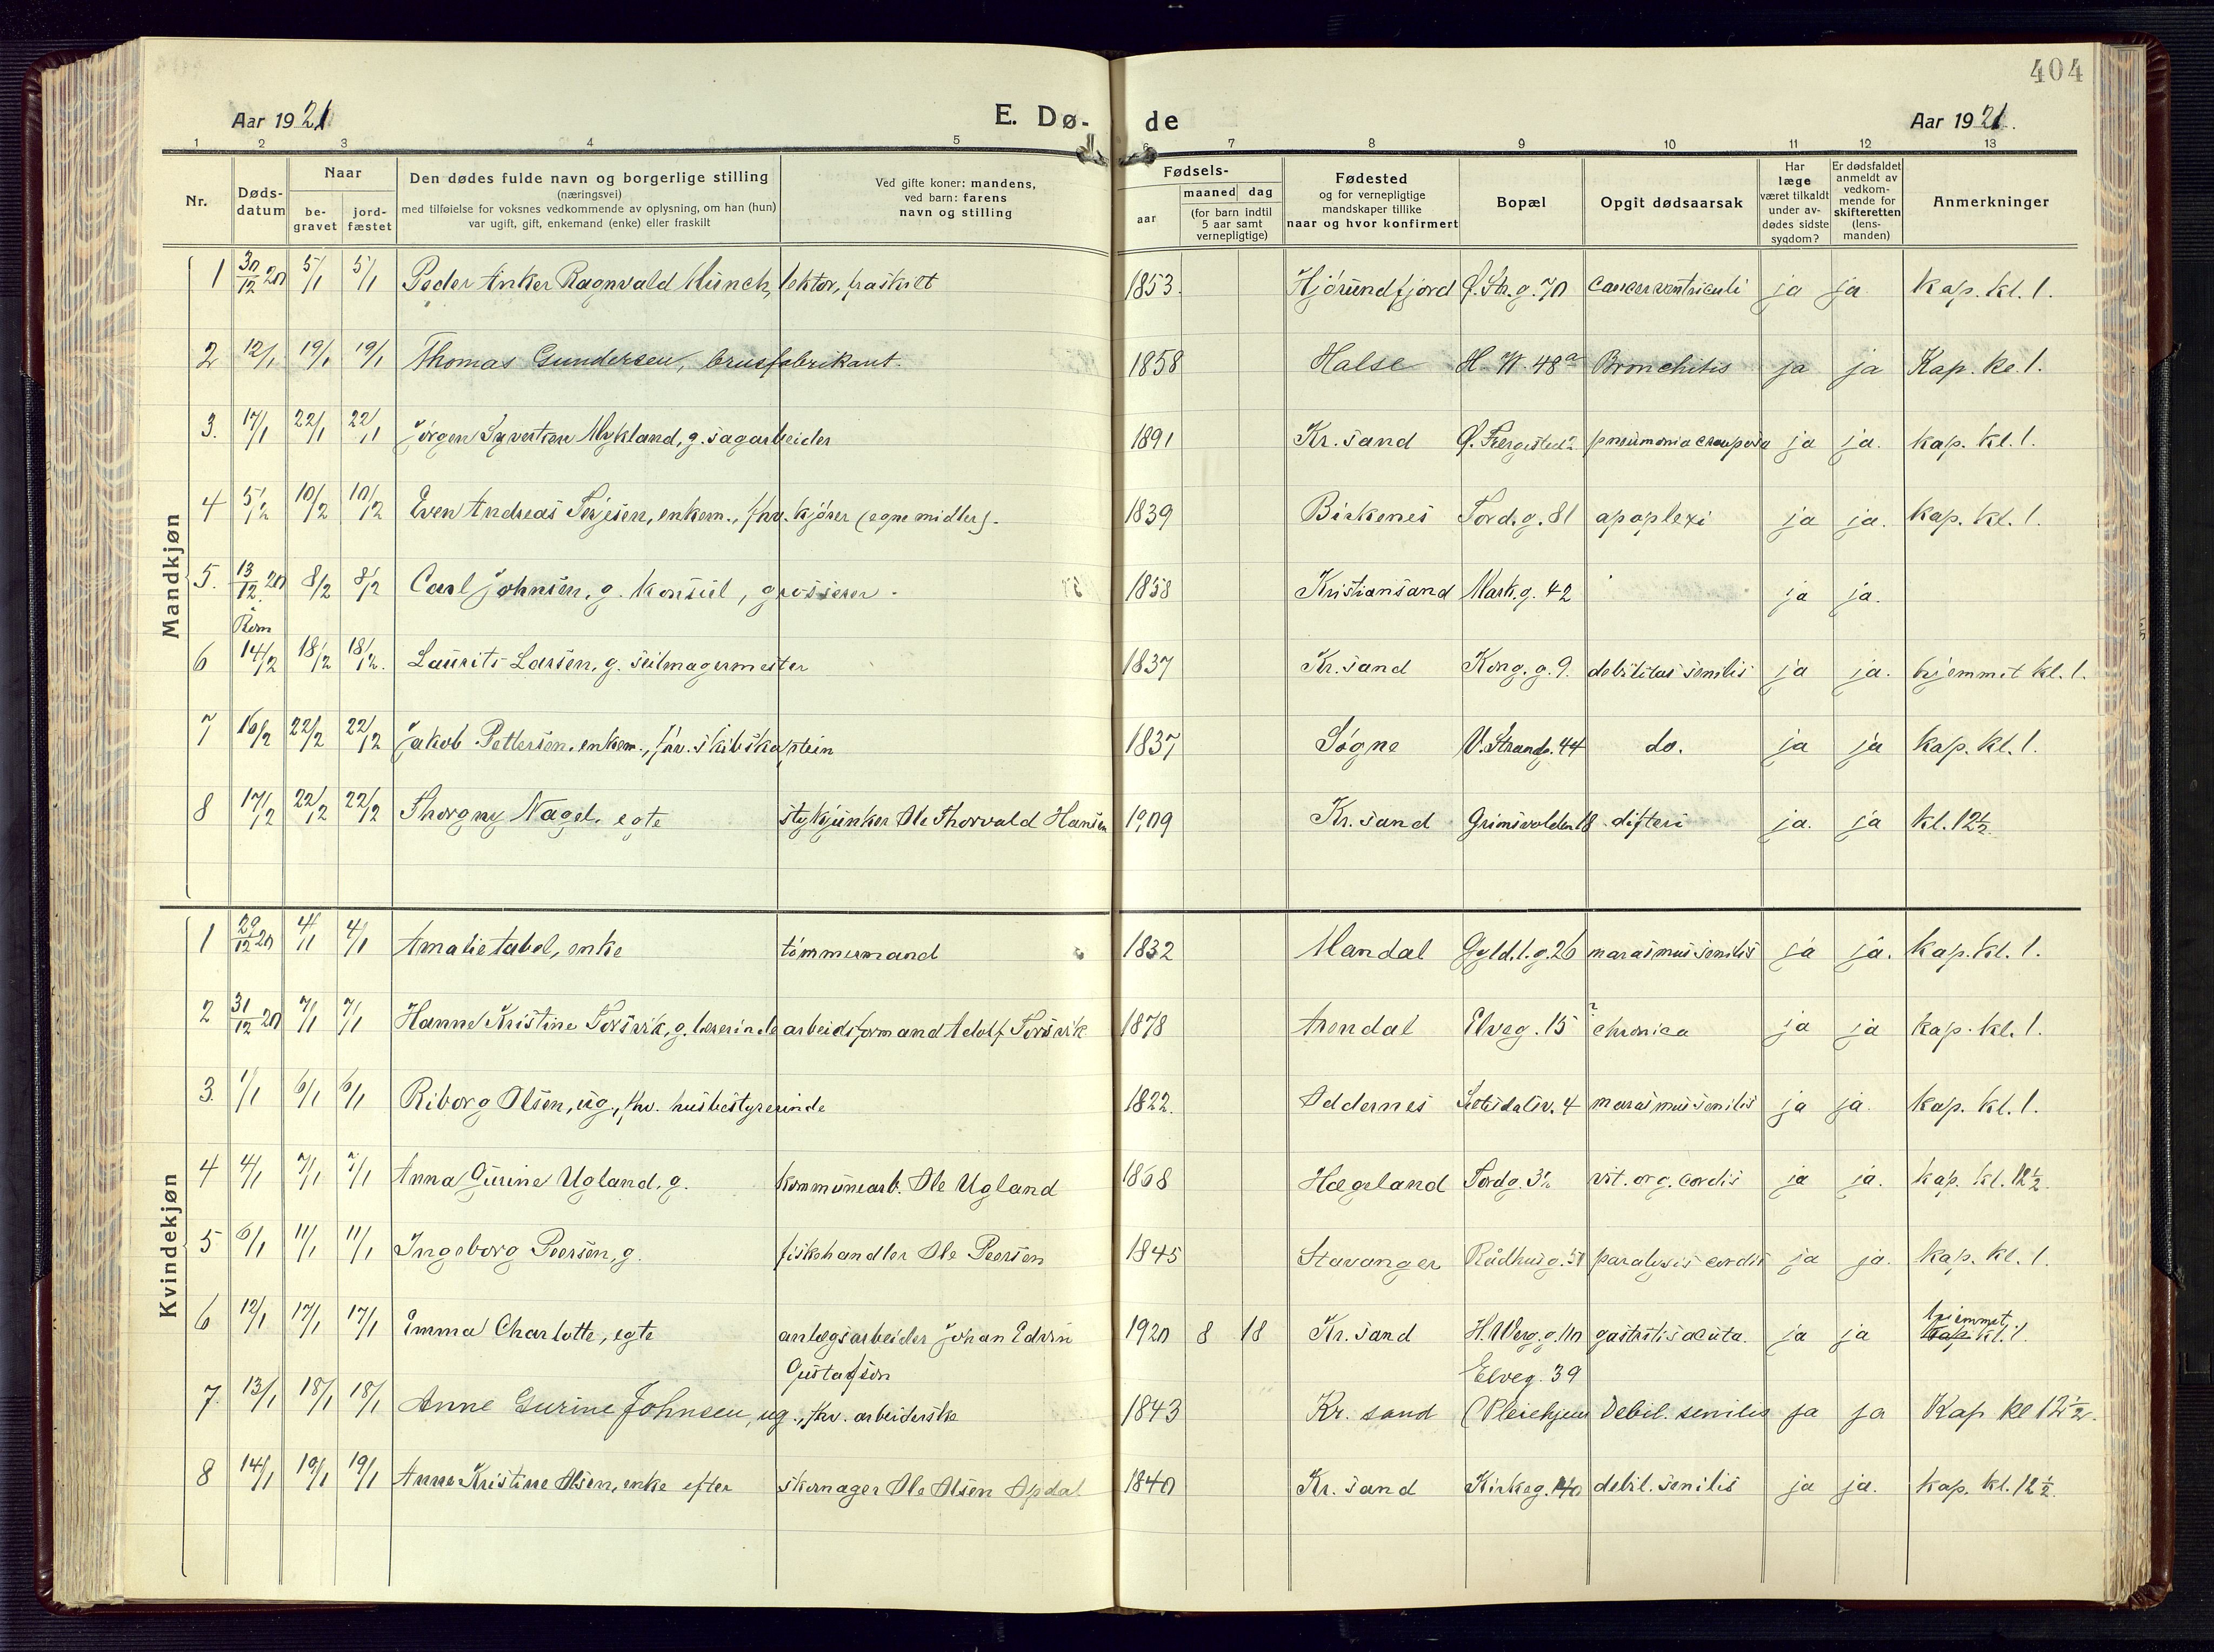 404
Aar 1921
E. Dø-
de
Aar 1921.
1 2 3 4 5 6 7 8 9 10 11 12 13
Nr.
Døds-
datum
Naar
be-
gravet
jord-
fæstet
Den dødes fulde navn og borgerlige stilling
(næringsvei)
med tilføielse for voksnes vedkommende av oplysning, om han (hun)
var ugift, gift, enkemand (enke) eller fraskilt
Ved gifte koner: mandens,
ved barn: farens
navn og stilling
Fødsels-
aar
maaned
dag
(for barn indtil
5 aar samt
vernepligtige)
Fødested
og for vernepligtige
mandskaper tillike
naar og hvor konfirmert
Bopæl
Opgit dødsaarsak
Har
læge
været tilkaldt
under av-
dødes sidste
sygdom?
Er dødsfaldet
anmeldt av
vedkom-
mende for
skifteretten
(lens-
manden)
Anmerkninger
Mandkjøn
1 30/12 20 5/1 5/1 Peder Anker Ragnvald Münch, lektor, fraskilt 1853. Hjörundfjord Ø. Str. g. 70 Cancer ventriculi ja ja. kap. kl. 1.
2 12/1 19/1 19/1 Thomas Gundersen, brusfabrikant. 1858 Halse H. W. 48a Bronchitis ja ja Kap. kl. 1.
3. 17/1 22/1 22/1 Jörgen Syvertsen Mykland, g. sagarbeider 1891 Kr. sand pneumonia crouposa ja ja. kap. kl. 1.
4 5/2 10/2 10/2 Even Andreas Terjesen, enkem., fhv. kjörer (egne midler). 1839 Birkenes Tord. g. 81 apoplexi ja ja. kap. kl. 1.
5. 13/12 20 i Rom 8/2 8/2 Carl Johnsen, g. konsul, grosserer. 1858 Kristiansand Mark. g. 42 ja ja.
6 14/2 18/2 18/2. Laurits Larsen, g. seilmagermester 1837 Kr. sand Kong. g. 9. debilitas senilis ja ja. hjemmet kl. 1.
7 16/2 22/2 22/2 Jakob Pettersen, enkem., fhv. skibskaptein 1837 Søgne V. Strandg. 44 do. ja ja kap. kl. 1.
8 17/2 22/2 22/2 Thorgny Nagel, egte stykjunker Ole Thorvald Hansen 1909 Kr. sand Grimsvolden 18 difteri ja. ja kl. 12 1/2.
Kvindekjøn
1 29/12 20 4/1 4/1 Amalie Tabel, enke tömmermand 1832 Mandal Gyld. l. g. 26 marasmus senilis ja ja. kap. kl. 1.
2 31/12 20 7/1 7/1 Hanne Kristine Torsvik, g. lærerinde arbeidsformand Adolf Torsvik 1878 Arendal Elveg. 15 ? chronica ja ja kap. kl. 1.
3. 1/1 6/1 6/1 Riborg Olsen, ug., fhv. husbestyrerinde 1822. Oddernes marasmus senilis ja ja. kap. kl. 1.
4 4/1 7/1 7/1 Anna Gurine Ugland, g. kommunearb. Ole Ugland 1868 Hægeland Tordg. vit. org. cordis ja ja. kap. kl. 12 1/2.
5 6/1 11/1 11/1 Ingeborg Peersen, g. fiskehandler Ole Peersen 1845 Stavanger Rådhusg. paralysis cordis ja ja. kap. kl. 1.
6 12/1 17/1 17/1 Emma Charlotte, egte anlægsarbeider Johan Edvin
Gustafson 1920 8 18 Kr. sand H. Werg. g. 110 gastritis acuta. ja ja hjemmet kap. kl. 1.
7. 13/1 18/1 18/1 Anne Gurine Johnsen, ug., fhv. arbeiderske 1843 Kr. sand Elveg. 39 (Pleiehjem Debil. senilis ja ja Kap kl 12 1/2.
8 14/1 19/1 19/1 Anne Kristine Olsen, enke efter skomager Ole Olsen Opdal 1840 Kr. sand Kirkeg. debil. senilis ja ja. kap. kl. 12 1/2.